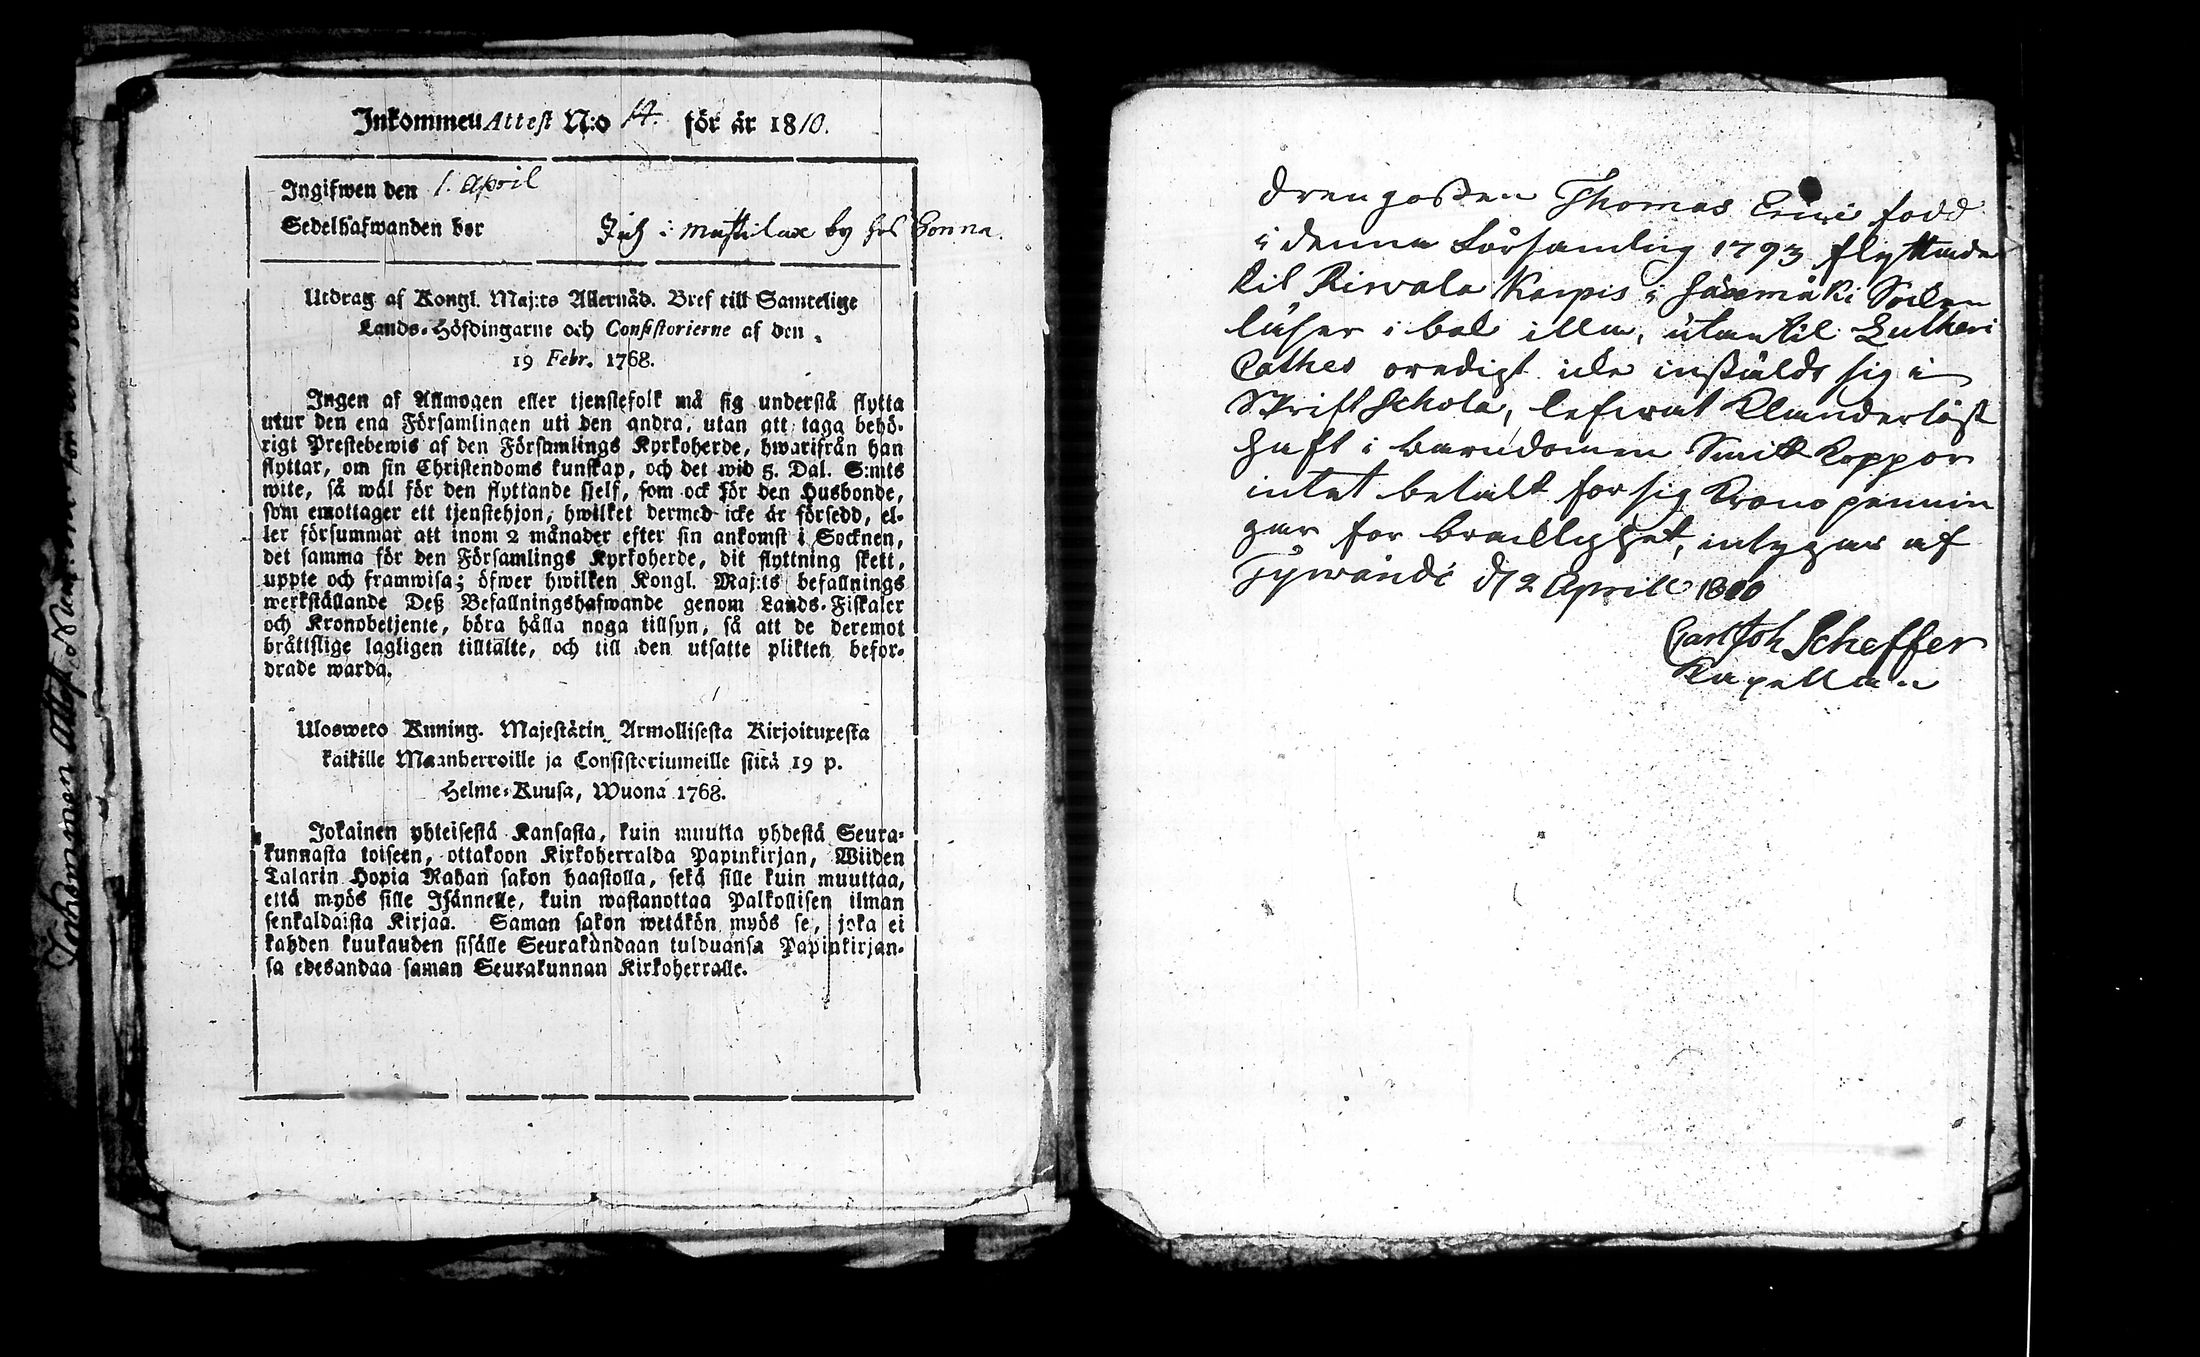 Inkommen Attest N:o 14. för år 1810.
Ingifwen den 1. April
Sedelhafwanden bor i Mattilax by hos Sonna.
Utdrag af Kongl. Maj:ts Allernåd. Bref till Samtelige
Lands-Höfdingarne och Consistorierne af den
19 Febr. 1768.
Ingen af Allmogen eller tjenstefolk må sig understå flytta
utur den ena Församlingen uti den andra, utan att taga behö-
rigt Prestebewis af den Församlings Kyrkoherde, hwarifrån han
flyttar, om sin Christendoms kunskap, och det wid 5. Dal. S:mts
wite, så wäl för den flyttande sjelf, som ock för den Husbonde,
som emottager ett tjenstehjon, hwilket dermed icke är försedd, el-
ler försummar att inom 2 månader efter sin ankomst i Socknen,
det samma för den Församlings Kyrkoherde, dit flyttning skett,
uppte och framwisa; öfwer hwilken Kongl. Maj:ts befallnings
werkställande Deß Befallningshafwande genom Lands-Fiskaler
och Kronobetjente, böra hålla noga tillsyn, så att de deremot
bråttslige lagligen tilltalte, och till den utsatte plikten befor-
drade warda.
Ulosweto Kuning. Majestätin Armollisesta Kirjoituxesta
kaikille Maanherroille ja Consistoriumeille siitä 19 p.
Helme-Kuusa, Wuona 1768.
Jokainen yhteisestä Kansasta, kuin muutta yhdestä Seura-
kunnasta toiseen, ottakoon Kirkoherralda Papinkirjan, Wiiden
Talarin Hopia Rahan sakon haastolla, sekä sille kuin muuttaa,
että myös sille Isännelle, kuin wastanottaa Palkollisen ilman
senkaldaista Kirjaa. Saman sakon wetäkön myös se, joka ei
kahden kuukauden sisälle Seurakundaan tulduansa Papinkirjan-
sa edesandaa saman Seurakunnan Kirkoherralle.
drengoßen Thomas född
i denna Församling 1793 flyttande
til Rirvala Karpis i Socken
läser i bok illa, utantil Lutheri
Cathes oredigt icke inställdt sig i
Skriftschola, lefwat klanderlöst
haft i barndomen Smitt Koppor
intet betalt för sig Krono pennin
gar för bräcklighet, intygar af
d 2 April 1810
Carl Joh Scheffer
Kapellan